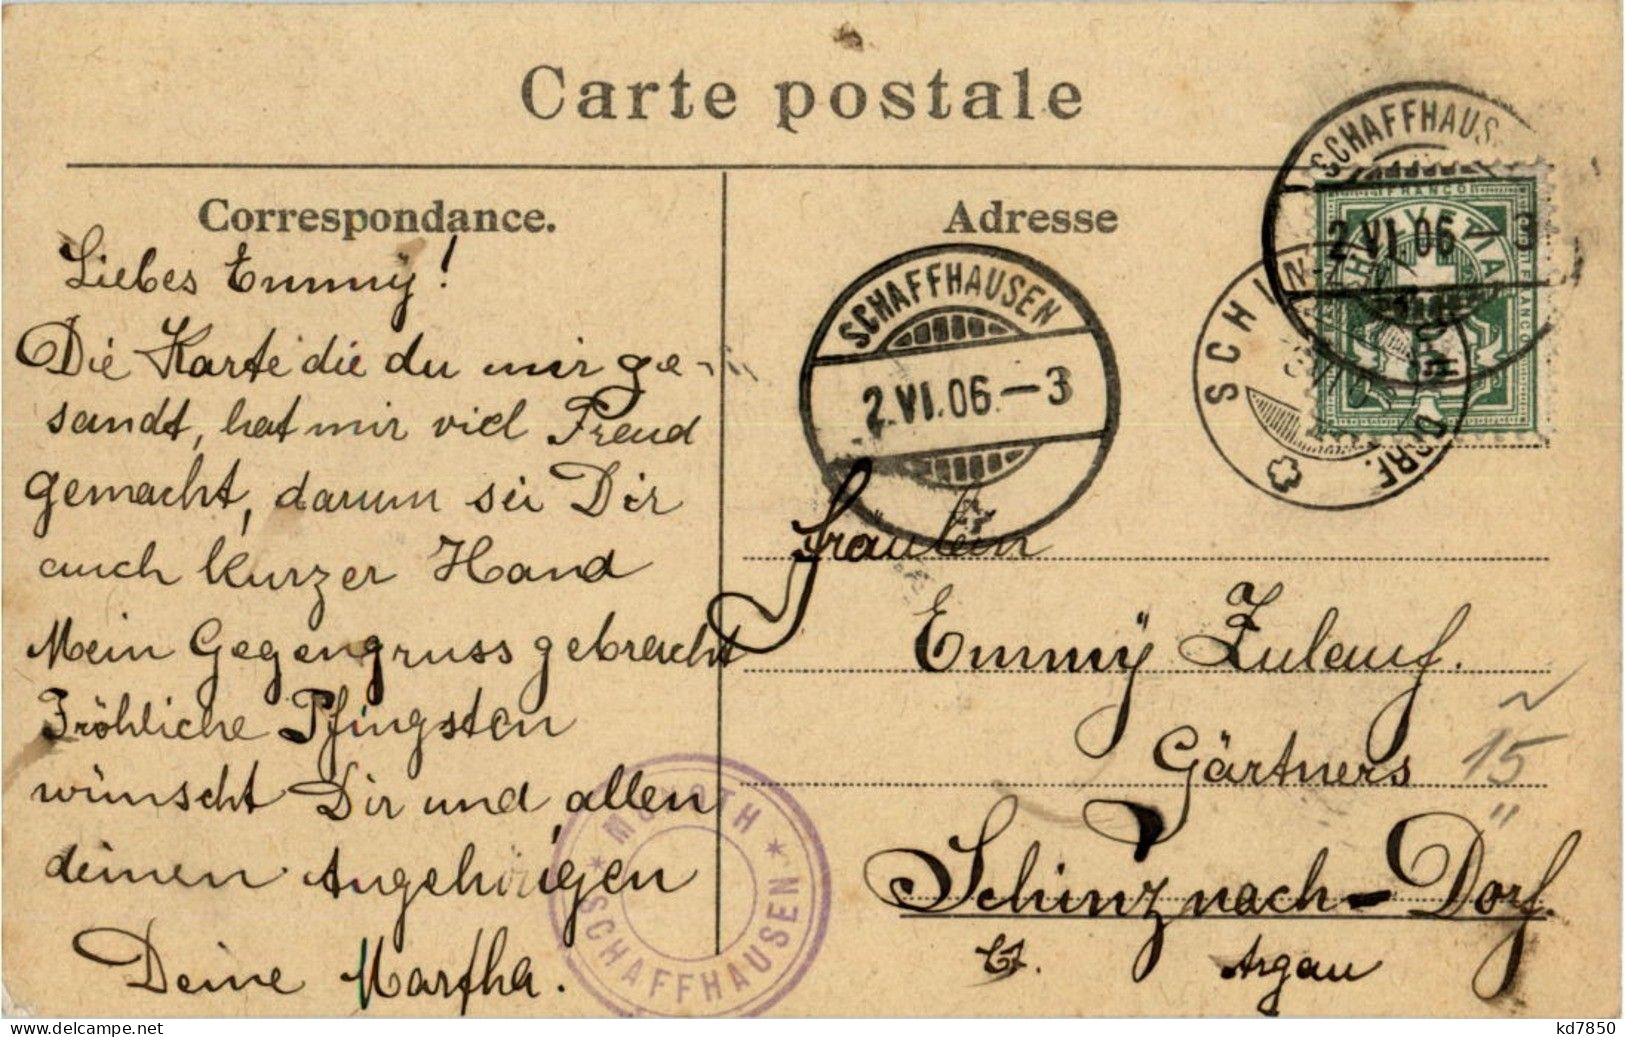 Carte postale
Correspondance.
Liebes Emmÿ!
Die Karte die du mir ge-
sandt, hat mir viel Freud
gemacht, darum sei Dir
auch kurzer Hand
Mein Gegengruss gebracht
Fröhliche Pfingsten
wünscht Dir und allen
deinen Angehörigen
Deine Martha.
Adresse
SCHAFFHAUSEN
2.VI.06.-3
SCHAFFHAUS
2.VI.06-3
FRANCO
HELVETIA
FRANCO
SCHINZNACH DORF.
Fräulein
Emmÿ Zulauf.
Gärtners
15
Schinznach-Dorf.
Ct. Argau
SCHAFFHAUSEN
www.delcampe.net
kd7850